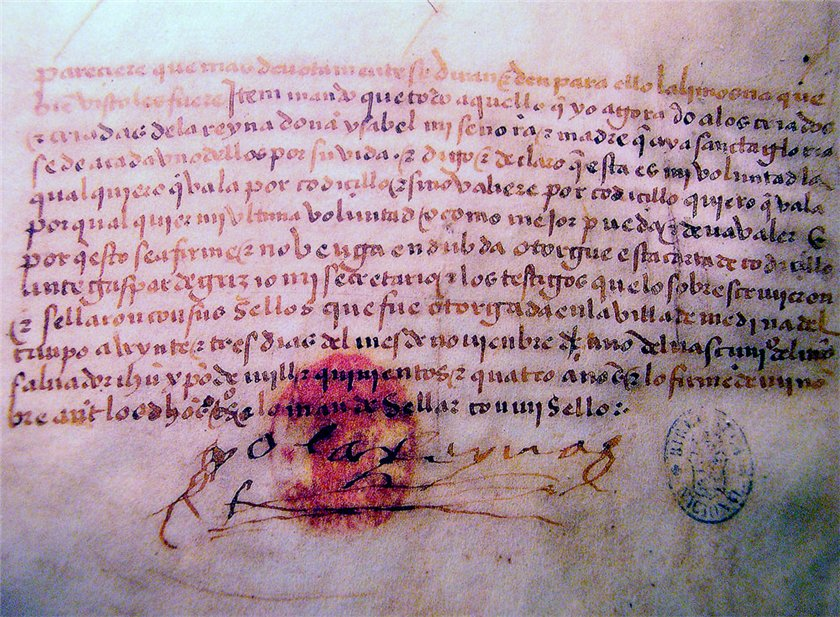 pareciere que mas devotamente se diran & den para ello la limosna que
bie visto les fuere Item mando que todo aquello q yo agora do a los criados
& criadas de la reyna dona ysabel mi señora & madre q aya sancta gloria
se de a cada uno dellos por su vida & digo & declaro q esta es mi voluntad la
qual quiero q vala por codicillo & si no valiere por codicillo quiero q vala
por qual quier mi ultima voluntad o como mejor pueda & deva valer E
por q esto sea firme & no venga en dubda otorgue esta carta de codicillo
ante gaspar de grizio mi secretario & los testigos que lo sobrescrivieron
& sellaron con sus sellos que fue otorgada en la villa de medina del
campo a veynte & tres dias del mes de noviembre del año del nascimi° del nro
salvador ihu xpo de mill & quinientos & quatro años & lo firme de mi no
bre ante los dhos tos & lo mande sellar con mi sello :.
yo la reyna
BIBLIOTECA NACIONAL